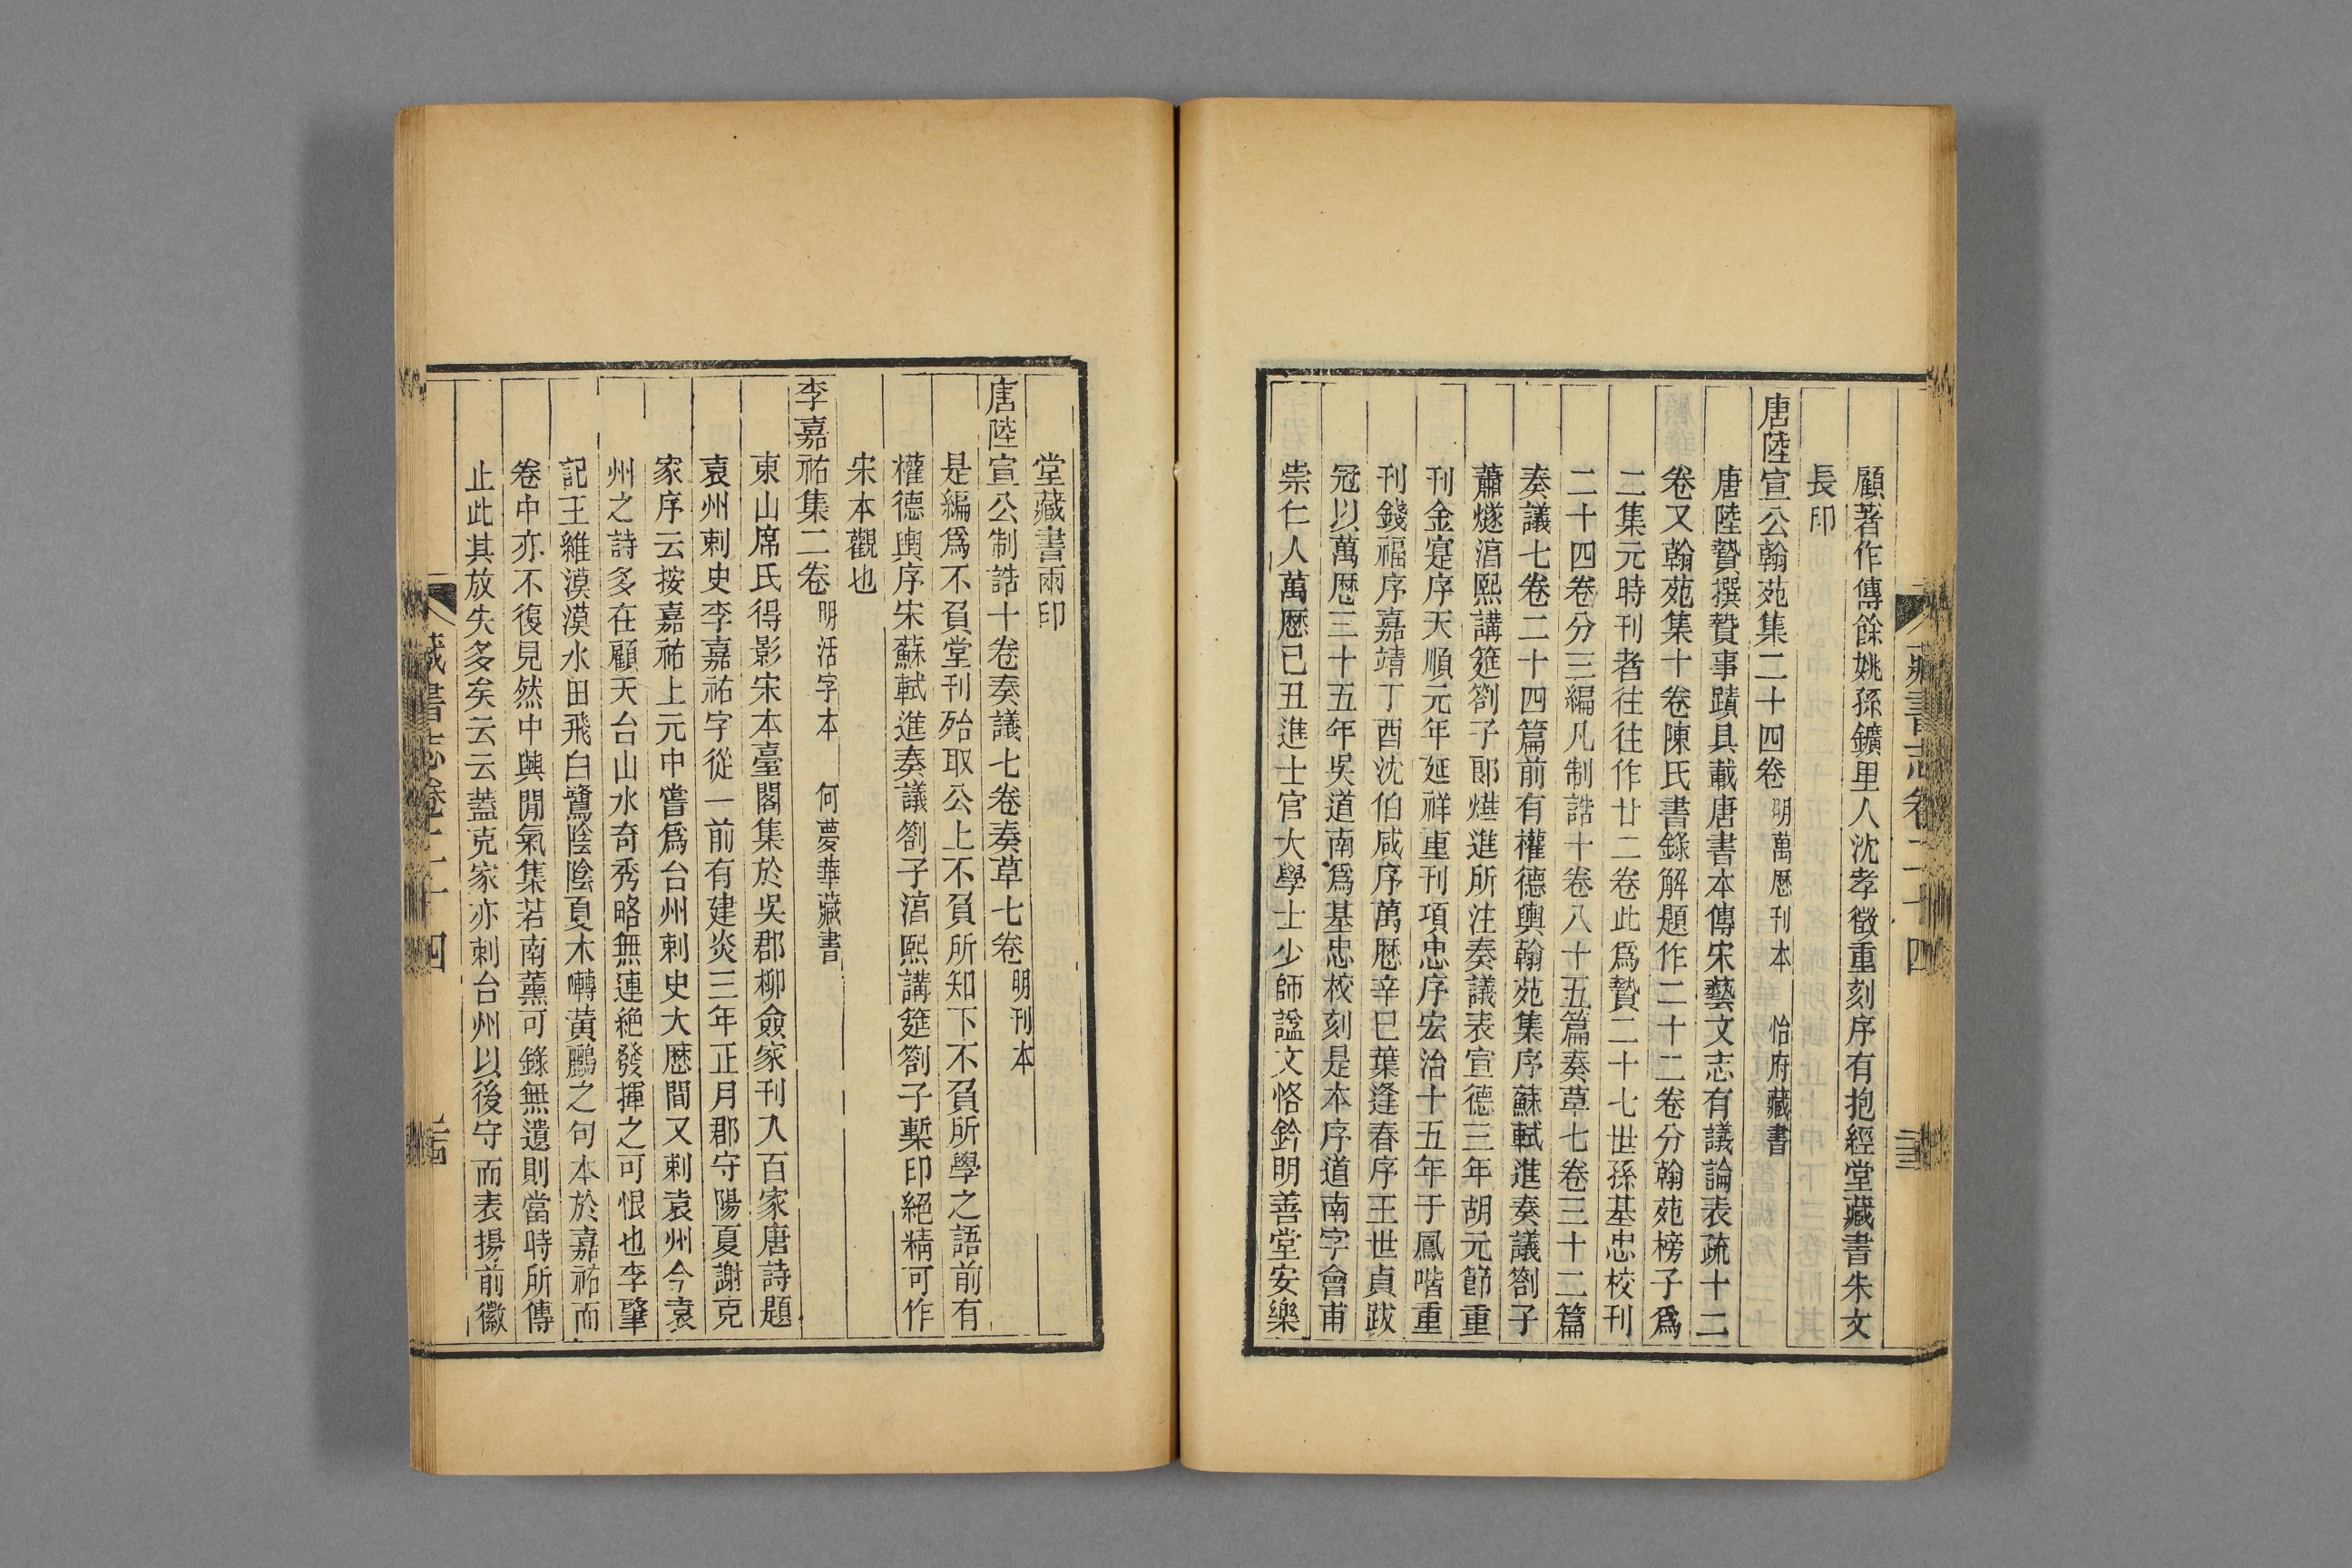 顧著作傳餘姚孫鑛里人沈孝徵重刻序有抱經堂藏書朱文
長印
唐陸宣公翰苑集二十四卷 明萬厯刊本 怡府藏書
唐陸贄撰贄事蹟具載唐書本傳宋藝文志有議論表疏十二
卷又翰苑集十卷陳氏書錄解題作二十二卷分翰苑榜子爲
二集元時刊者往往作廿二卷此爲贄二十七世孫基忠校刊
二十四卷分三編凡制誥十卷八十五篇奏草七卷三十二篇
奏議七卷二十四篇前有權德輿翰苑集序蘇軾進奏議劄子
蕭燧淳熙講筵劄子郎㷅進所注奏議表宣德三年胡元節重
刊金寔序天順元年延祥重刊項忠序宏治十五年于鳳喈重
刊錢福序嘉靖丁酉沈伯咸序萬厯辛巳葉逢春序王世貞跋
冠以萬厯三十五年吳道南爲基忠校刻是本序道南字會甫
崇仁人萬厯己丑進士官大學士少師諡文恪鈐明善堂安樂
藏書志卷二十四
堂藏書兩印
唐陸宣公制誥十卷奏議七卷奏草七卷 明刊本
是編爲不負堂刊殆取公上不負所知下不負所學之語前有
權德輿序宋蘇軾進奏議劄子淳熙講筵劄子槧印絕精可作
宋本觀也
李嘉祐集二卷 明活字本 何夢華藏書
東山席氏得影宋本臺閣集於吳郡柳僉家刊入百家唐詩題
袁州刺史李嘉祐字從一前有建炎三年正月郡守陽夏謝克
家序云按嘉祐上元中嘗爲台州刺史大厯間又刺袁州今袁
州之詩多在顧天台山水奇秀略無連絕發揮之可恨也李肇
記王維漠漠水田飛白鷺陰陰夏木囀黃鸝之句本於嘉祐而
卷中亦不復見然中興閒氣集若南薰可錄無遺則當時所傳
止此其放失多矣云云蓋克家亦刺台州以後守而表揚前徽
藏書志卷二十四